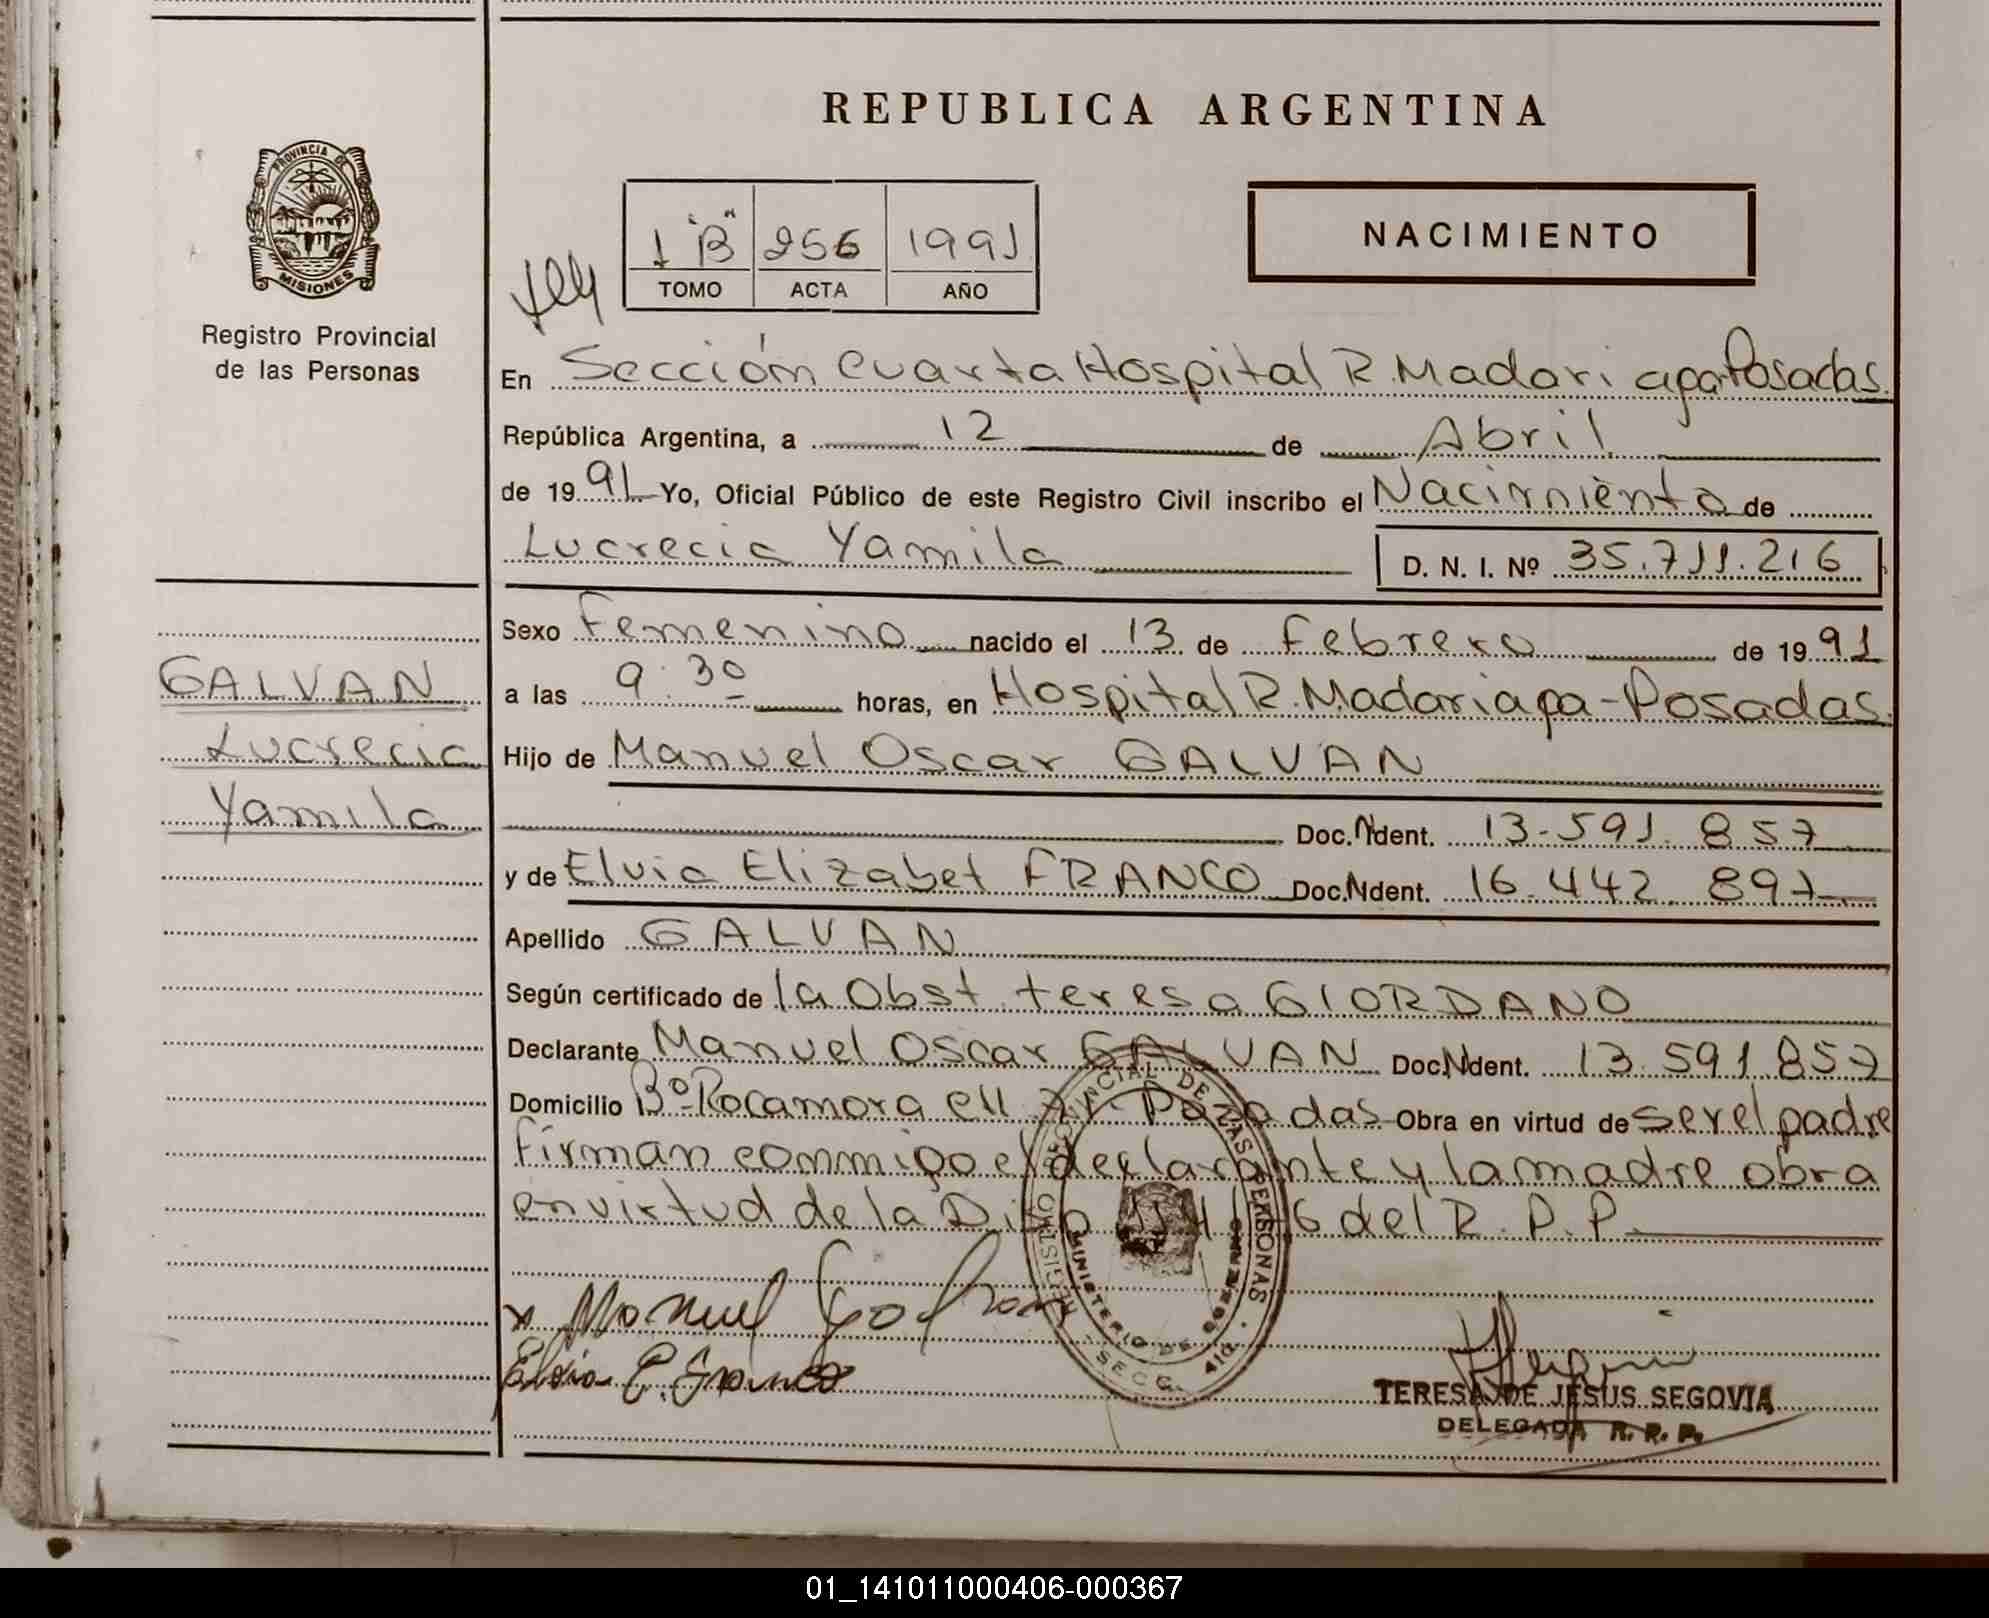 REPUBLICA ARGENTINA
PROVINCIA DE
MISIONES
Registro Provincial
de las Personas
1 "B" 256 1991
TOMO ACTA AÑO
NACIMIENTO
En Sección Cuarta Hospital R. Madariaga Posadas.
República Argentina, a 12 de Abril
de 1991 Yo, Oficial Público de este Registro Civil inscribo el Nacimiento de
Lucrecia Yamila D. N. I. Nº 35.711.216
Sexo Femenino nacido el 13 de Febrero de 1991
a las 9:30 horas, en Hospital R. Madariaga - Posadas.
Hijo de Manuel Oscar GALVAN
Doc. Ndent. 13-591.857
y de Elvia Elizabet FRANCO Doc. Ndent. 16.442.897
Apellido GALVAN
Según certificado de la Obst. teresa GIORDANO
Declarante Manuel Oscar GALVAN Doc. Ndent. 13.591.857
Domicilio Bº Rocamora Posadas Obra en virtud de ser el padre
firman conmigo el declarante y la madre obra
en virtud de la Disp. del R.P.P.
GALVAN
Lucrecia
Yamila
REGISTRO PROVINCIAL DE LAS PERSONAS
MINISTERIO DE GOBIERNO
SECC. 4ta
Manuel Galvan
Elvia E. Franco
TERESA DE JESUS SEGOVIA
DELEGADA R. R. P.
01_141011000406-000367